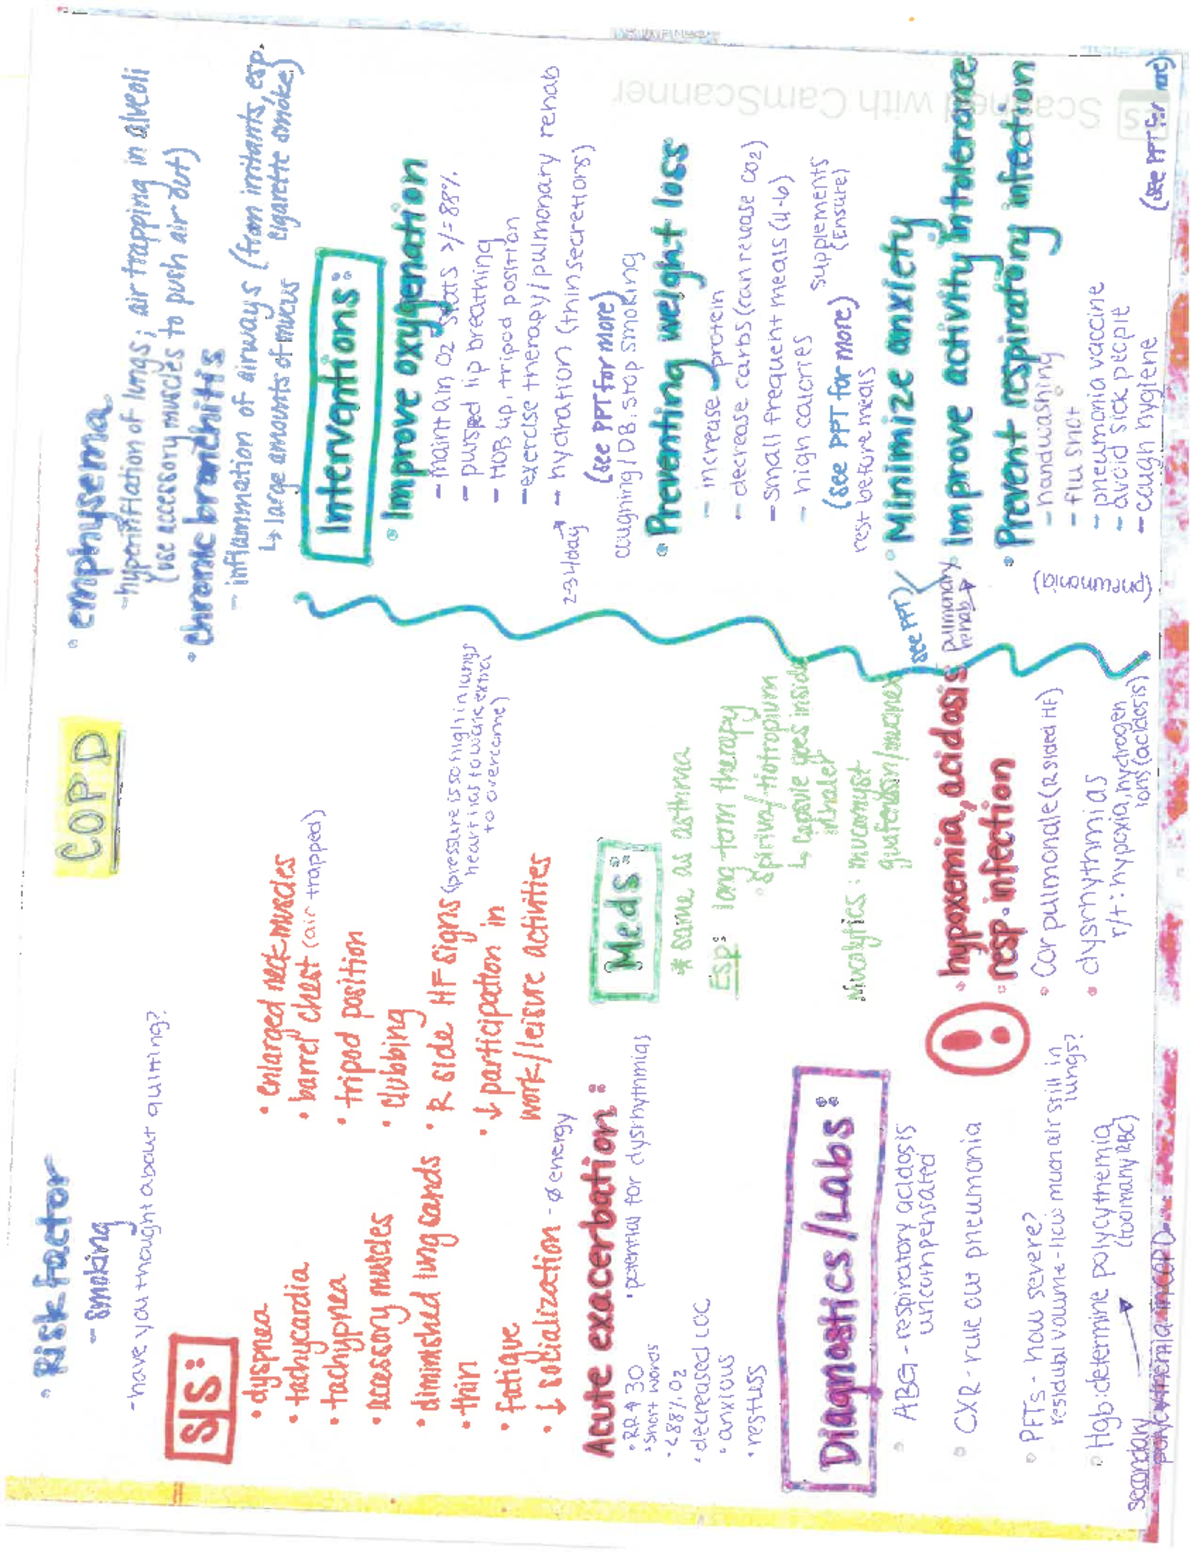 COPD
• Risk factor
- smoking
- have you thought about quitting?
• emphysema
- hyperinflation of lungs; air trapping in alveoli
(use accessory muscles to push air out)
• chronic bronchitis
- inflammation of airways (from irritants, esp.
cigarette smoke)
↳ large amounts of mucus
S/S:
• dyspnea
• tachycardia
• tachypnea
• accessory muscles
• diminished lung sounds
• thin
• fatigue
• ↓ socialization - ø energy
• enlarged neck muscles
• barrel chest (air trapped)
• tripod position
• clubbing
• R side HF signs (pressure is so high in lungs
heart has to work extra
to overcome)
• ↓ participation in
work/leisure activities
Acute exacerbation:
• RR ↑ 30
• short words
• <88% O2
• decreased LOC
• anxious
• restless
• potential for dysrhythmias
Meds:
* same as asthma
Esp: long term therapy
• spiriva/tiotropium
↳ capsule goes inside
inhaler
Mucolytics: mucomyst
guafenesin/mucinex
Diagnostics/Labs:
• ABG - respiratory acidosis
uncompensated
• CXR - rule out pneumonia
• PFTs - how severe?
residual volume - how much air still in
lungs?
• Hgb: determine polycythemia
(too many RBC)
secondary
polycythemia in COPD
• hypoxemia, acidosis
• resp. infection
• Cor pulmonale (R sided HF)
• dysrhythmias
r/t: hypoxia, hydrogen
ions (acidosis)
Interventions:
• Improve oxygenation
- maintain O2 stats >/= 88%
- pursed lip breathing
- HOB up, tripod position
- exercise therapy/pulmonary rehab
2-3 L/day → - hydration (thin secretions)
(see PPT for more)
coughing/DB: stop smoking
• Preventing weight loss
- increase protein
- decrease carbs (can release CO2)
- small frequent meals (4-6)
- high calories
supplements
(Ensure)
(see PPT for more)
rest before meals
• Minimize anxiety
(see PPT)
• Improve activity intolerance
pulmonary
rehab
• Prevent respiratory infection
(pneumonia)
- handwashing
- flu shot
- pneumonia vaccine
- avoid sick people
- cough hygiene
(see PPT for more)
CS Scanned with CamScanner